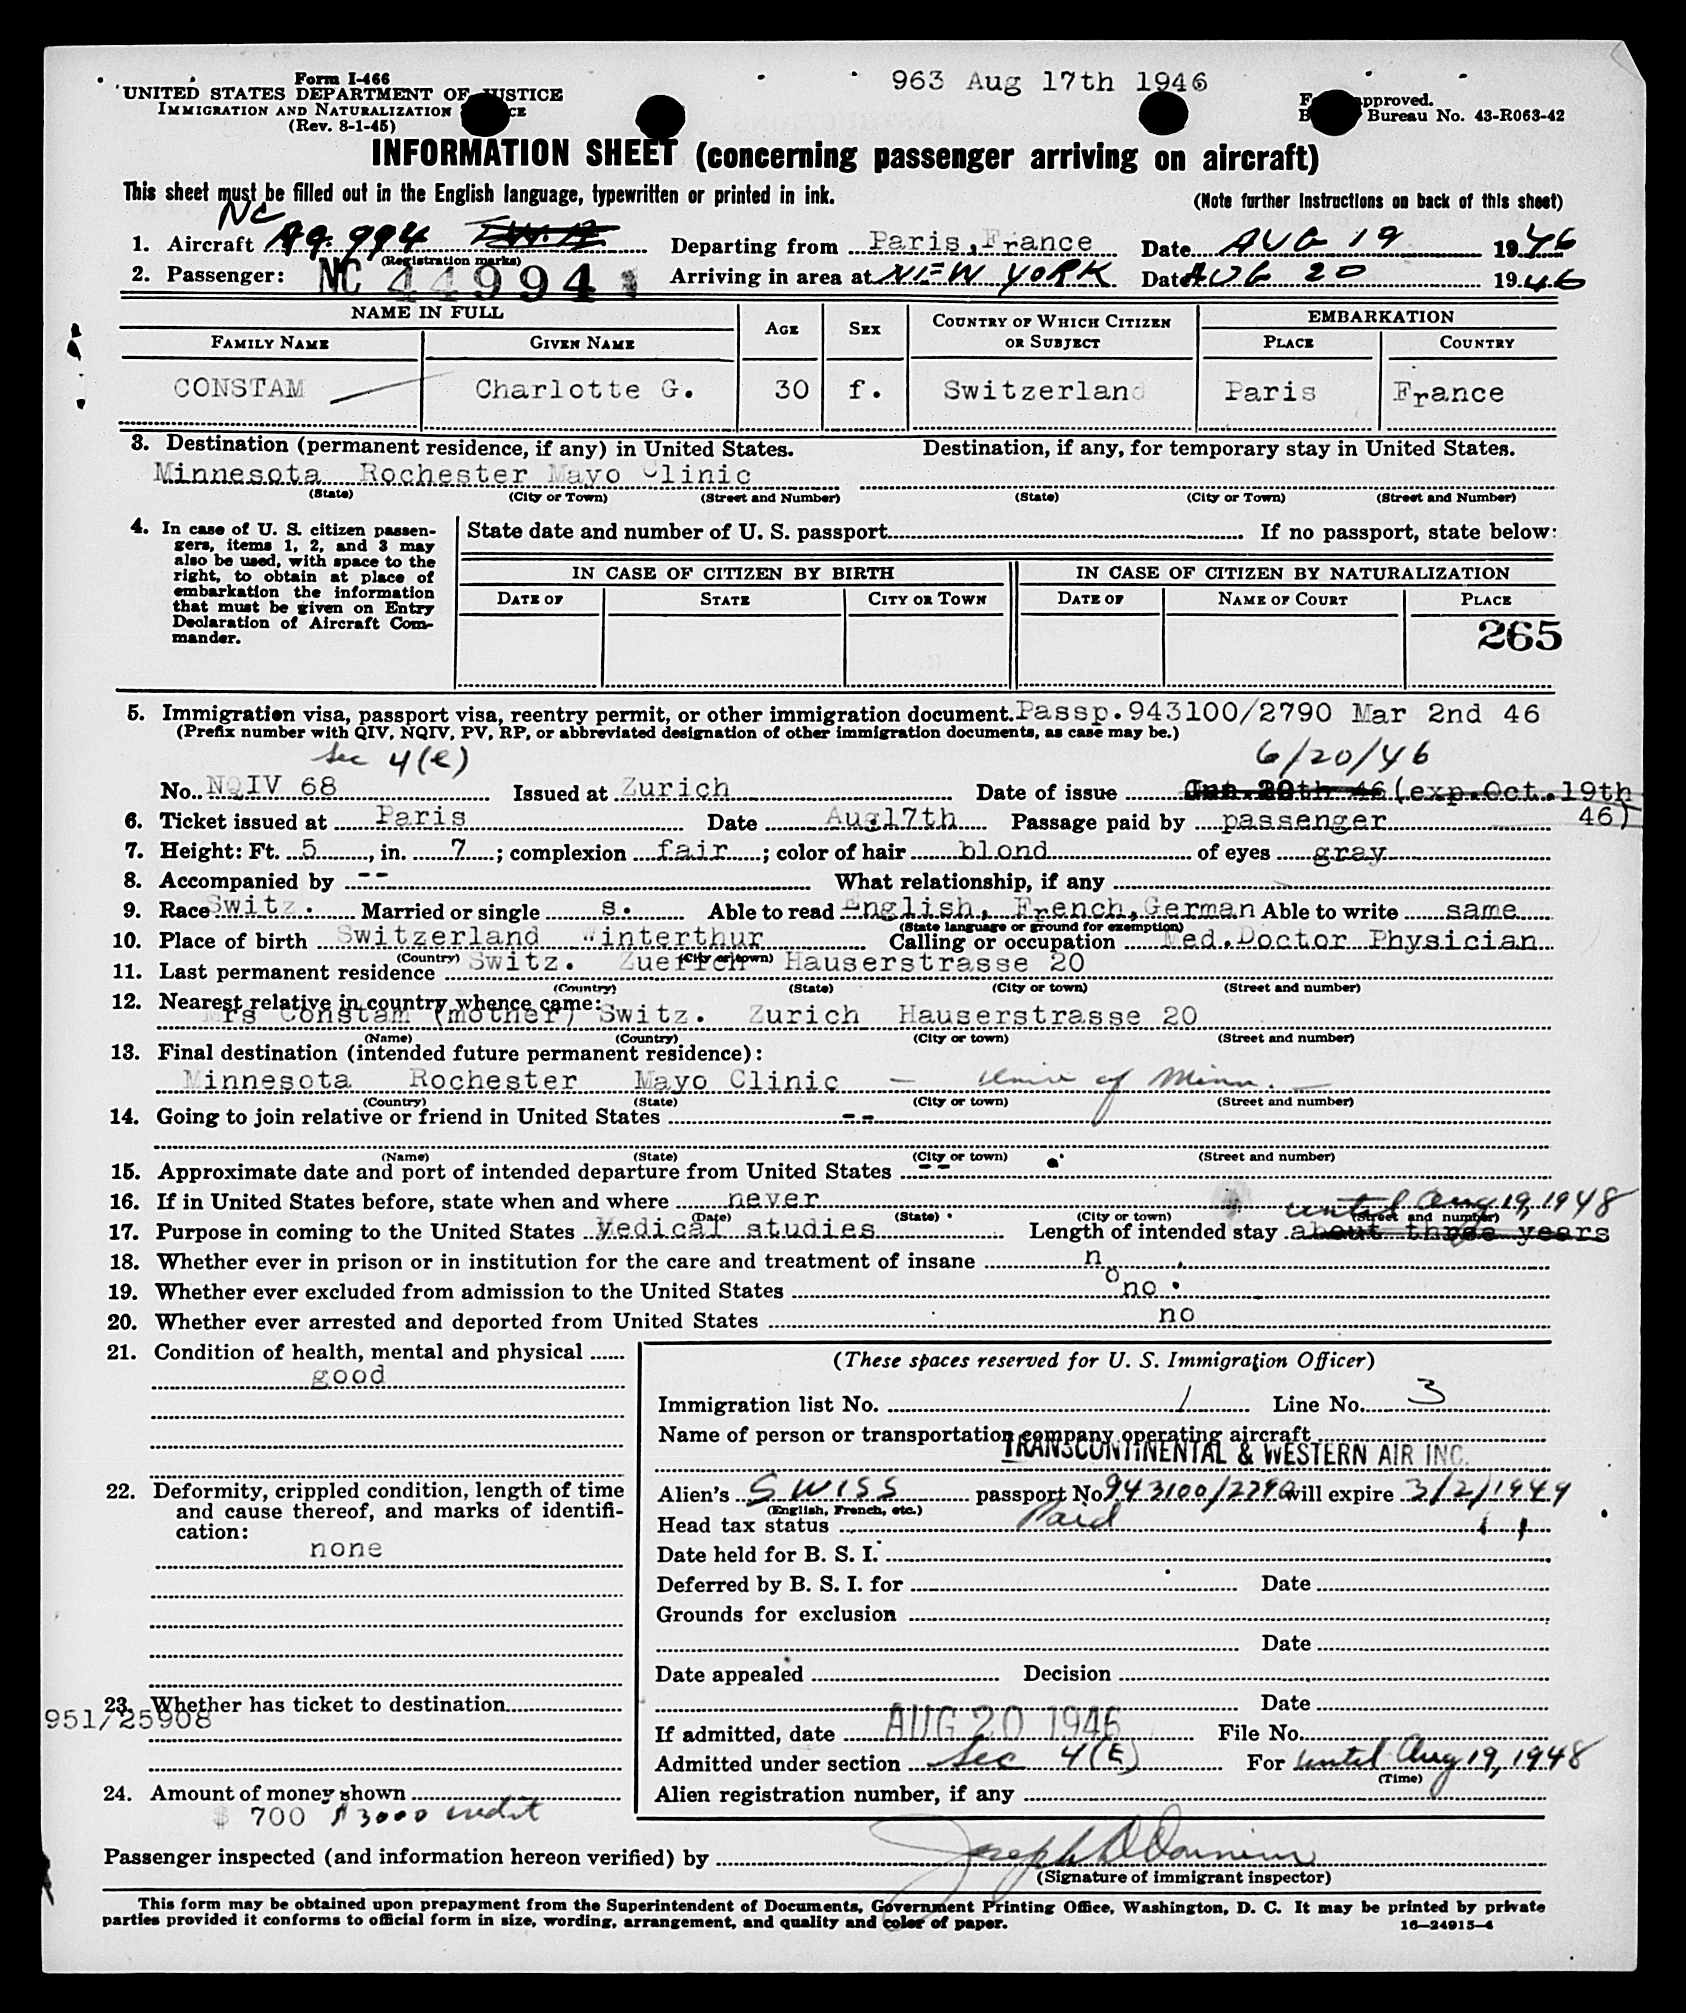 963 Aug 17th 1946
Form I-466
UNITED STATES DEPARTMENT OF JUSTICE
IMMIGRATION AND NATURALIZATION
(Rev. 8-1-45)
pproved.
Bureau No. 43-R063-42
INFORMATION SHEET (concerning passenger arriving on aircraft)
This sheet must be filled out in the English language, typewritten or printed in ink.
(Note further instructions on back of this sheet)
NC
1. Aircraft 994 Departing from Paris, France Date AUG 19 1946
(Registration marks)
2. Passenger: NC 44994 Arriving in area at NEW YORK Date AUG 20 1946
NAME IN FULL
FAMILY NAME GIVEN NAME AGE SEX COUNTRY OF WHICH CITIZEN OR SUBJECT EMBARKATION PLACE COUNTRY
CONSTAM Charlotte G. 30 f. Switzerland Paris France
3. Destination (permanent residence, if any) in United States. Destination, if any, for temporary stay in United States.
Minnesota Rochester Mayo Clinic
(State) (City or Town) (Street and Number) (State) (City or Town) (Street and Number)
4. In case of U. S. citizen passen-
gers, items 1, 2, and 3 may
also be used, with space to the
right, to obtain at place of
embarkation the information
that must be given on Entry
Declaration of Aircraft Com-
mander.
State date and number of U. S. passport If no passport, state below:
IN CASE OF CITIZEN BY BIRTH IN CASE OF CITIZEN BY NATURALIZATION
DATE OF STATE CITY OR TOWN DATE OF NAME OF COURT PLACE
265
5. Immigration visa, passport visa, reentry permit, or other immigration document. Passp.943100/2790 Mar 2nd 46
(Prefix number with QIV, NQIV, PV, RP, or abbreviated designation of other immigration documents, as case may be.)
Sec 4(e) 6/20/46
No. NQIV 68 Issued at Zurich Date of issue Jun. 20th 46 (exp.Oct.19th
46)
6. Ticket issued at Paris Date Aug17th Passage paid by passenger
7. Height: Ft. 5, in. 7; complexion fair; color of hair blond of eyes gray
8. Accompanied by -- What relationship, if any
9. Race Switz. Married or single s. Able to read English, French, German Able to write same
(State language or ground for exemption)
10. Place of birth Switzerland Winterthur Calling or occupation Med.Doctor Physician
(Country) (City or town)
11. Last permanent residence Switz. Zuerich Hauserstrasse 20
(Country) (State) (City or town) (Street and number)
12. Nearest relative in country whence came:
Mrs Constam (mother) Switz. Zurich Hauserstrasse 20
(Name) (Country) (City or town) (Street and number)
13. Final destination (intended future permanent residence):
Minnesota Rochester Mayo Clinic — Univ of Minn. —
(Country) (State) (City or town) (Street and number)
14. Going to join relative or friend in United States --
(Name) (State) (City or town) (Street and number)
15. Approximate date and port of intended departure from United States --
16. If in United States before, state when and where never
(Date) (State) (City or town) (Street and number)
until Aug 19, 1948
17. Purpose in coming to the United States Medical studies Length of intended stay about three years
18. Whether ever in prison or in institution for the care and treatment of insane no
19. Whether ever excluded from admission to the United States no
20. Whether ever arrested and deported from United States no
21. Condition of health, mental and physical
good
22. Deformity, crippled condition, length of time
and cause thereof, and marks of identifi-
cation:
none
23. Whether has ticket to destination
951/25908
24. Amount of money shown
$ 700 $3000 credit
(These spaces reserved for U. S. Immigration Officer)
Immigration list No. 1 Line No. 3
Name of person or transportation company operating aircraft
TRANSCONTINENTAL & WESTERN AIR INC.
Alien's SWISS passport No. 943100/2790 will expire 3/2/1949
(English, French, etc.)
Head tax status Paid
Date held for B. S. I.
Deferred by B. S. I. for Date
Grounds for exclusion
Date
Date appealed Decision
Date
If admitted, date AUG 20 1946 File No.
Admitted under section Sec 4(E) For until Aug 19, 1948
(Time)
Alien registration number, if any
Passenger inspected (and information hereon verified) by
(Signature of immigrant inspector)
This form may be obtained upon prepayment from the Superintendent of Documents, Government Printing Office, Washington, D. C. It may be printed by private
parties provided it conforms to official form in size, wording, arrangement, and quality and color of paper.
16—24915-4